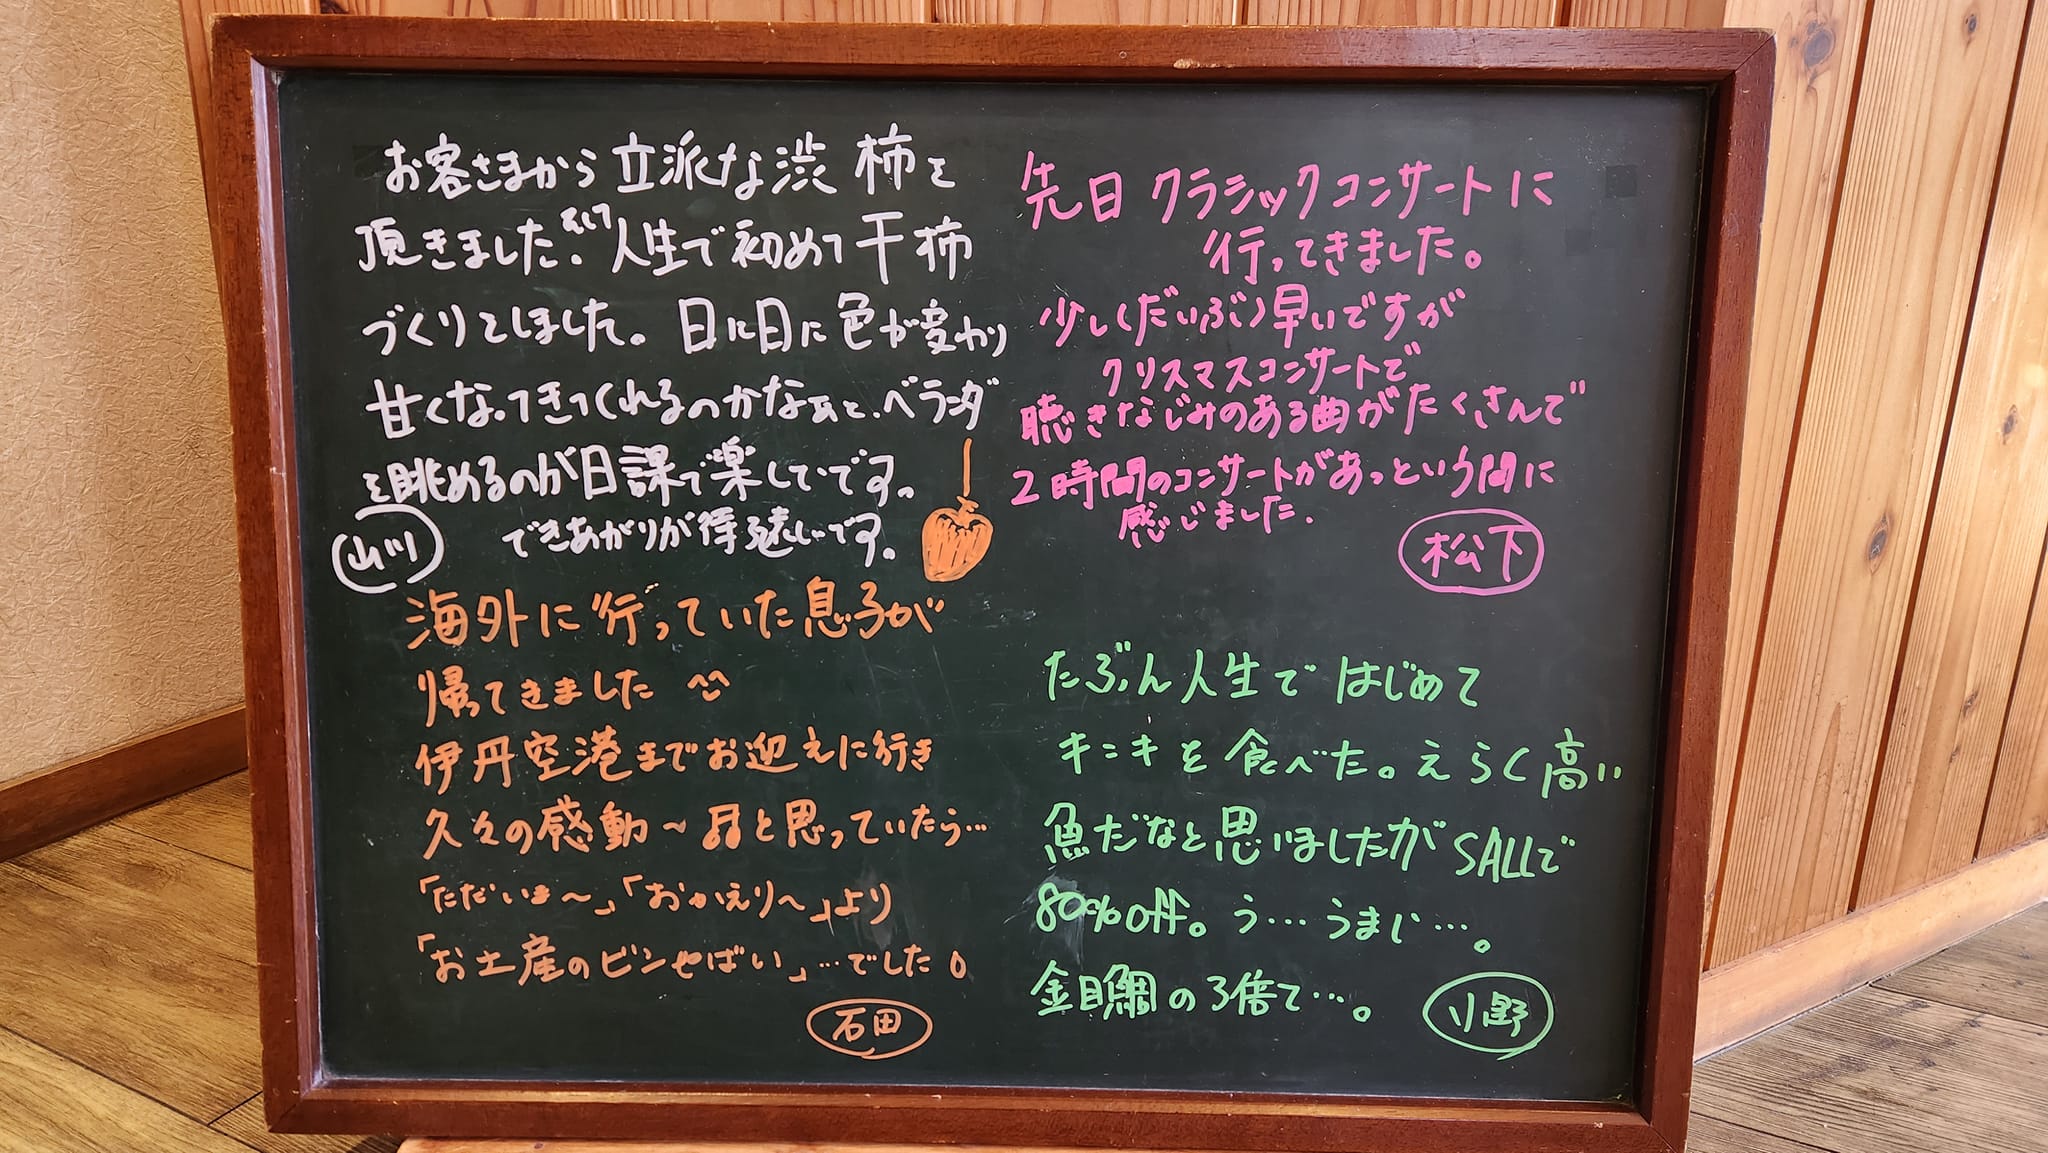 お客さまから立派な渋柿を
頂きました。そして人生で初めて干柿
づくりをしました。日に日に色が変わり
甘くなってきてくれるのかなぁと、ベランダ
を眺めるのが日課で楽しいです。
できあがりが待ち遠しいです。
山川
海外に行っていた息子が
帰ってきました ^^
伊丹空港までお迎えに行き
久々の感動~♬と思っていたら…
「ただいま~」「おかえり~」より
「お土産のピンせばい」…でした。
石田
先日クラシックコンサートに
行ってきました。
少し(だいぶ)早いですが
クリスマスコンサートで
聴きなじみのある曲がたくさんで
2時間のコンサートがあっという間に
感じました。
松下
たぶん人生ではじめて
キンキを食べた。えらく高い
魚だなと思いましたがSALLで
80%off。う…うまい…。
金目鯛の3倍て…。
小野